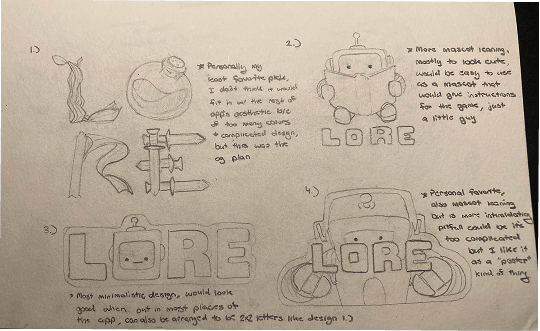 1.)
LO
RE
* Personally my
least favorite pick,
I don't think it would
fit in w/ the rest of
app's aesthetic b/c
of too many colors
+ complicated design,
but this was the
og plan
2.)
LORE
* More mascot leaning,
mostly to look cute,
would be easy to use
as a mascot that
would give instructions
for the game, just
a little guy
3.)
LORE
* Most minimalistic design, would look
good when put in most places of
the app, can also be arranged to be 2x2 letters like design 1.)
4.)
LORE
* Personal favorite,
also mascot leaning
but is more intimidating
pitfall could be its
too complicated
but I like it
as a "poster"
kind of thing